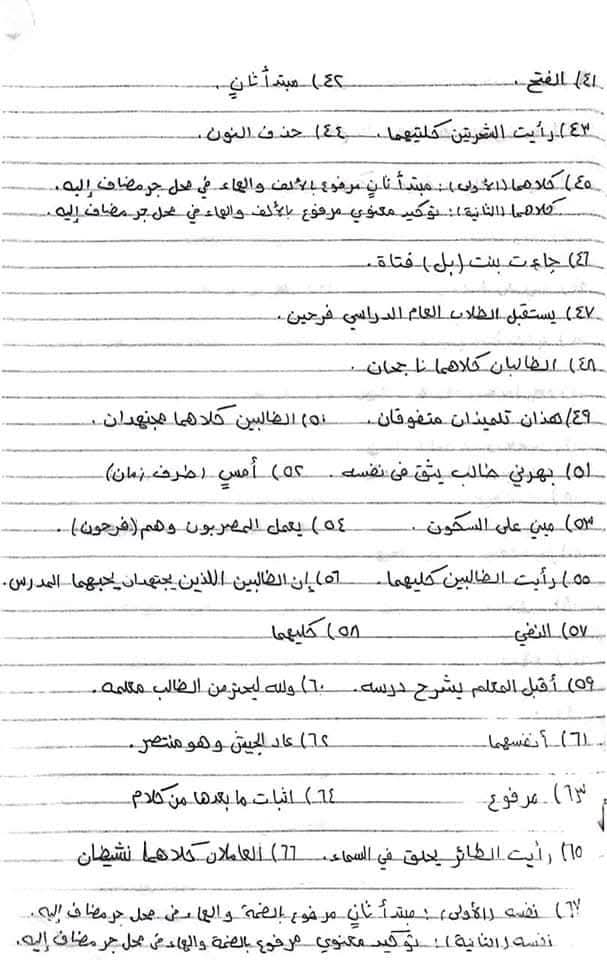 ٤١) الفتح . ٤٢) مبتدأ ثانٍ .
٤٣) رأيت الشعرتين كليهما. ٤٤) حذف النون.
٤٥) كلاهما (الأولى): مبتدأ ثانٍ مرفوع بالألف والهاء في محل جر مضاف إليه.
كلاهما (الثانية): توكيد معنوي مرفوع بالألف والهاء في محل جر مضاف إليه.
٤٦) جاءت بنت (بل) فتاة.
٤٧) يستقبل الطلاب العام الدراسي فرحين.
٤٨) الطالبان كلاهما ناجحان .
٤٩) هذان تلميذان متفوقان. ٥٠) الطالبين كلاهما مجتهدان.
٥١) بهرني طالب يثق في نفسه . ٥٢) أمسِ (ظرف زمان)
٥٣) مبني على السكون . ٥٤) يعمل المصريون وهم (فرحون).
٥٥) رأيت الطالبين كليهما. ٥٦) إن الطالبين اللذين يجتهدان يحبهما المدرس.
٥٧) النفي ٥٨) كليهما
٥٩) أقبل المعلم يشرح درسه. ٦٠) ولله ليحترمن الطالب معلمه.
٦١) أنفسهما ٦٢) عاد الجيش وهو منتصر.
٦٣) مرفوع ٦٤) اثبات ما بعدها من كلام
٦٥) رأيت الطائر يحلق في السماء. ٦٦) العاملان كلاهما نشيطان
٦٧) نفسه (الأولى): مبتدأ ثانٍ مرفوع بالضمة والهاء في محل جر مضاف إليه.
نفسه (الثانية): توكيد معنوي مرفوع بالضمة والهاء في محل جر مضاف إليه.